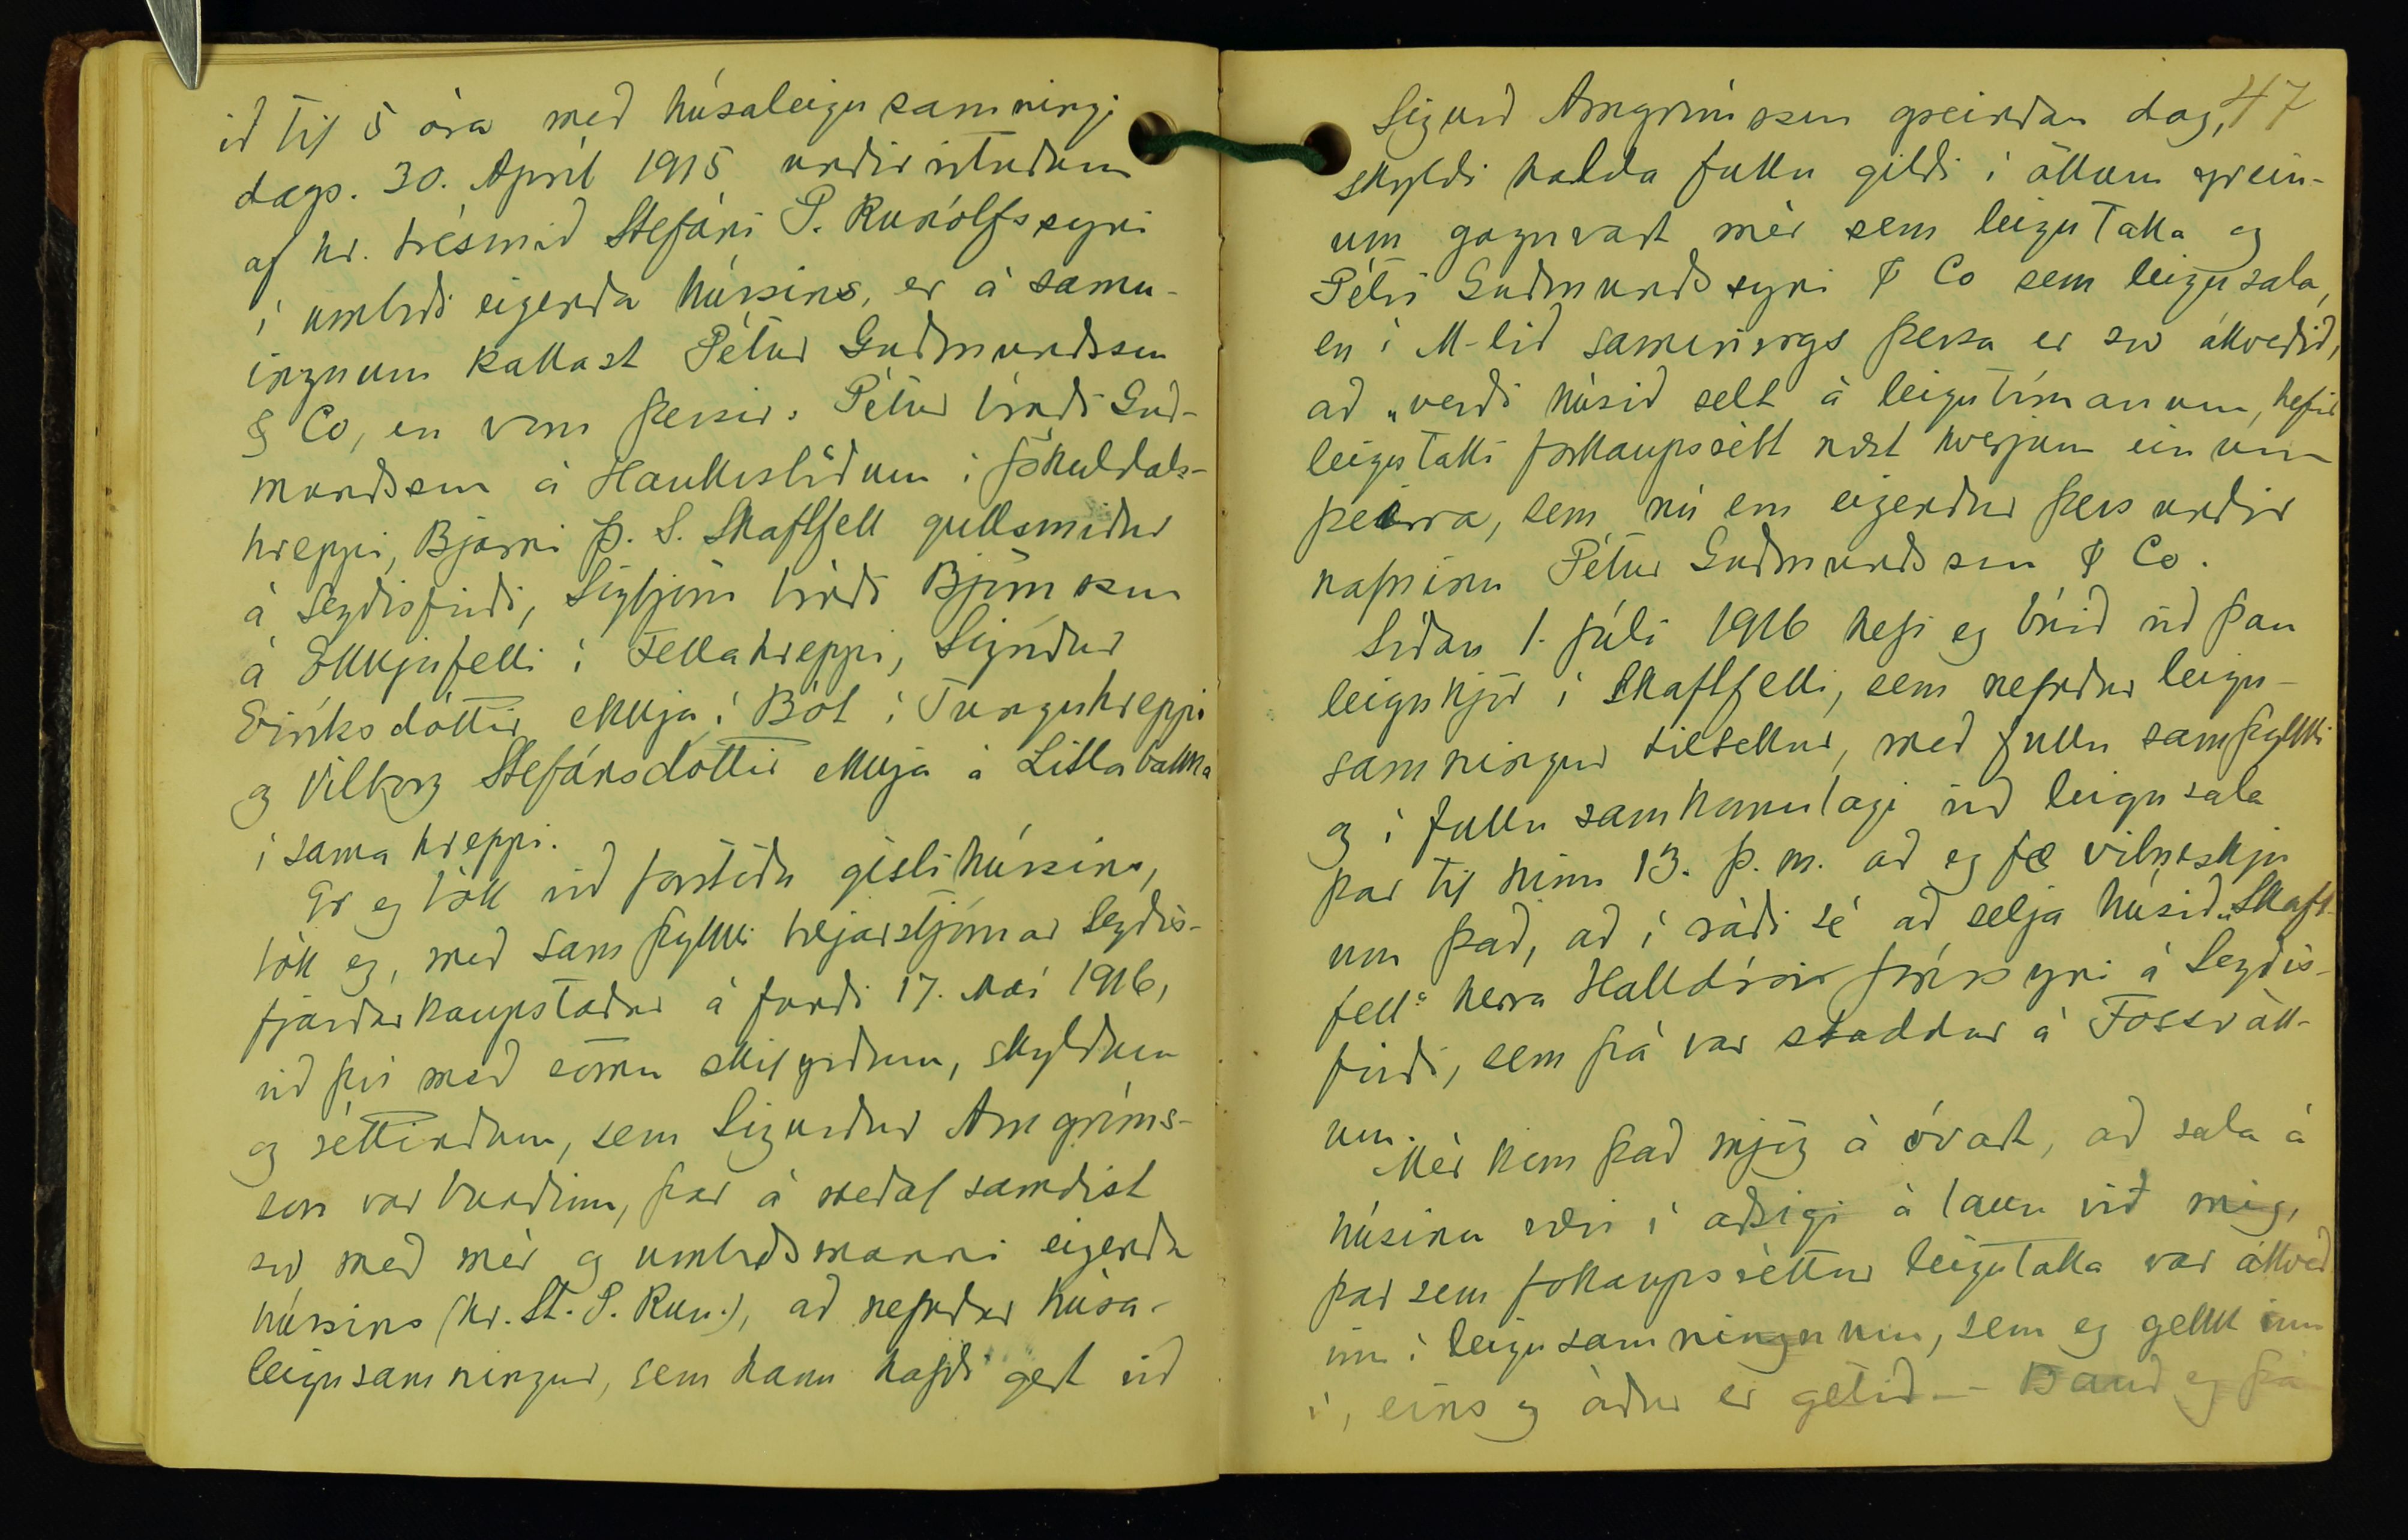 ið til 5 ára með húsaleigusamningi
dags. 30. Apríl 1915 undirrituðum
af hr. trésmið Stefáni P. Runólfssyni
í umboði eigenda hússins, er á samn-
ingnum kallast Pétur Guðmundsson
& Co, en voru þessir: Pétur bóndi Guð-
mundsson á Haukstöðum í Jökuldals-
hreppi, Bjarni Þ. S. Skaftfell gullsmiður
á Seyðisfirði, Sigbjörn bóndi Björnsson
á Ekkjufelli í Fellahreppi, Sigríður
Eiríksdóttir ekkja í Bót í Tunguhreppi
og Vilborg Stefánsdóttir ekkja á Litlabakka
í sama hreppi.
Er eg tók við forstöðu gistihússins,
tók eg, með samþykki bæjarstjórnar Seyðis-
fjarðarkaupstaðar á fundi 17. Maí 1916,
við því með sömu skilyrðum, skyldum
og réttindum, sem Sigurður Arngríms-
son var bundinn, þar á meðal samdist
svo með mér og umboðsmanni eigenda
hússins (hr. St. P. Run.), að nefndur húsa-
leigusamningur, sem hann hafði gert við
47
Sigurð Arngrímsson greindan dag,
skyldi halda fullu gildi í öllum grein-
um gagnvart mér sem leigutaka og
Pétri Guðmundssyni & Co sem leigusala,
en í M-lið samnings þessa er svo ákveðið,
að „verði húsið selt á leigutímanum, hefir
leigutaki forkaupsrétt næst hverjum einum
þeirra, sem nú eru eigendur þess undir
nafninu Pétur Guðmundsson & Co.
Síðan 1. júlí 1916 hefi eg búið við þau
leigukjör í Skaftfelli, sem nefndur leigu-
samningur tiltekur, með fullu samþykki
og í fullu samkomulagi við leigusala
þar til hinn 13. þ. m. að eg fæ vitneskju
um það, að í ráði sé að selja húsið „Skaft-
fell“ herra Halldóri Jónssyni á Seyðis-
firði, sem þá var staddur á Fossvöll-
um.
Mér kom það mjög á óvart, að sala á
húsinu væri í aðsigi á laun við mig,
þar sem forkaupsréttur leigutaka var ákveð
inn í leigusamningnum, sem eg gekk inn
í, eins og áður er getið. – Bauð eg þá